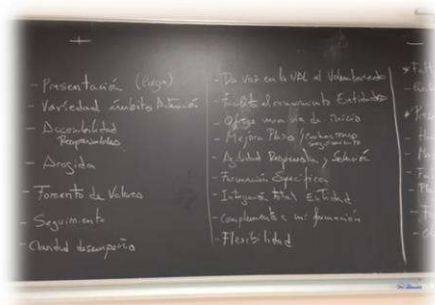 +
- Presentación (lugar)
- Variedad ámbitos Actuación
- Accesibilidad
Responsables
- Acogida
- Fomento de Valores
- Seguimiento
- Claridad desempeño
- Da voz en la UAL al Voluntariado
- Facilita el conocimiento Entidades
- Ofrece una vía de inicio
- Mejora Plazo /
seguimiento
- Agilidad Respuesta y Solución
- Formación Específica
- Integración total Entidad
- Complemento a mi formación
- Flexibilidad